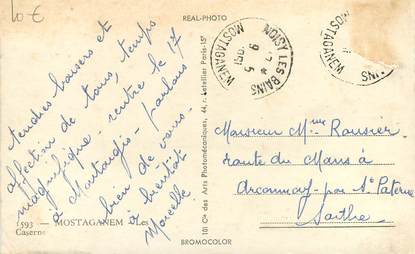 10 €
REAL-PHOTO
tendres baisers et
affection de tous, temps
magnifique - rentre le 17
à Montargis - parlons
bien de vous.
à bientôt
Marcelle
593 - MOSTAGANEM - Les
Caserne
101 Cie des Arts Photomécaniques, 44, r. Letellier Paris-15e
BROMOCOLOR
NOISY LES BAINS
MOSTAGANEM
MOSTAGANEM
INS
Monsieur Mme Rousier
route du Mans à
Arconnay - par St Paterne
Sarthe